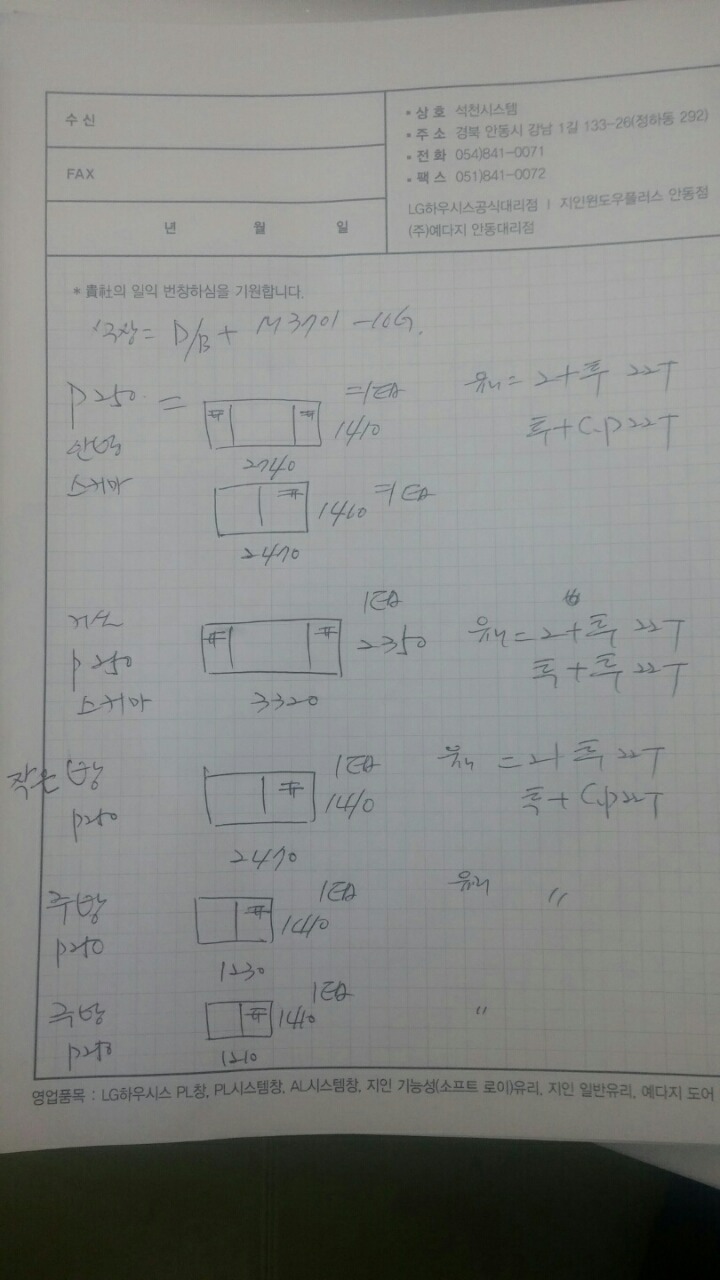 수 신
FAX
년 월 일
▪ 상 호 석천시스템
▪ 주 소 경북 안동시 강남 1길 133-26(정하동 292)
▪ 전 화 054)841-0071
▪ 팩 스 051)841-0072
LG하우시스공식대리점 | 지인윈도우플러스 안동점
(주)예다지 안동대리점
* 貴社의 일익 번창하심을 기원합니다.
D/B + M3701
P250 = 井 井 =1EA 1410 유리 = 2+투 22T
안방 2740 투+C.P 22T
스키마 井 1460 =1EA
2470
거실 井 井 1EA 2350 유리 = 2+투 22T
P250 투+투 22T
스키마 3320
작은방 井 1EA 1410 유리 = 2+투 22T
P250 2470 투+C.P 22T
주방 井 1EA 1410 유리 "
P250 1230
주방 井 1EA 1410 "
P250 1210
영업품목 : LG하우시스 PL창, PL시스템창, AL시스템창, 지인 기능성(소프트 로이)유리, 지인 일반유리, 예다지 도어